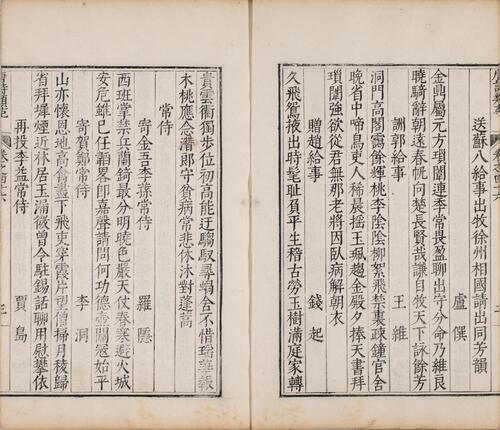 送蘇八給事出牧徐州相國請出同芳韻
盧僎
金鼎屬元方瑣闥連季常畏盈聊出守分命乃維良
曉騎辭朝遠春帆向楚長賢哉謙自牧天下詠餘芳
詶郭給事 王維
洞門高閣靄餘輝桃李陰陰柳絮飛禁裏疎鐘官舍
晚省中啼鳥吏人稀晨搖玉珮趨金殿夕捧天書拜
瑣闈強欲從君無那老將因臥病解朝衣
贈趙給事 錢起
久飛鴛掖出時髦耻負平生稽古勞玉樹滿庭家轉
貴雲衢獨步位初高能迂驄馭尋蝸舍不惜瑶華報
木桃應念潛郎守貧病常悲休沐對蓬蒿
常侍
寄金吾李蓀常侍 羅隱
西班掌禁兵蘭錡最分明曉色嚴天仗春寒避火城
安危雖已任韜畧即嘉聲請問何功德壺關冠始平
寄賀鄭常侍 李洞
山亦懷恩地高禽盡下飛吏穿霞片望僧掃月稜歸
省拜墀煙近林居玉漏微曾令駐錫話聊用慰攀依
再投李益常侍 賈島